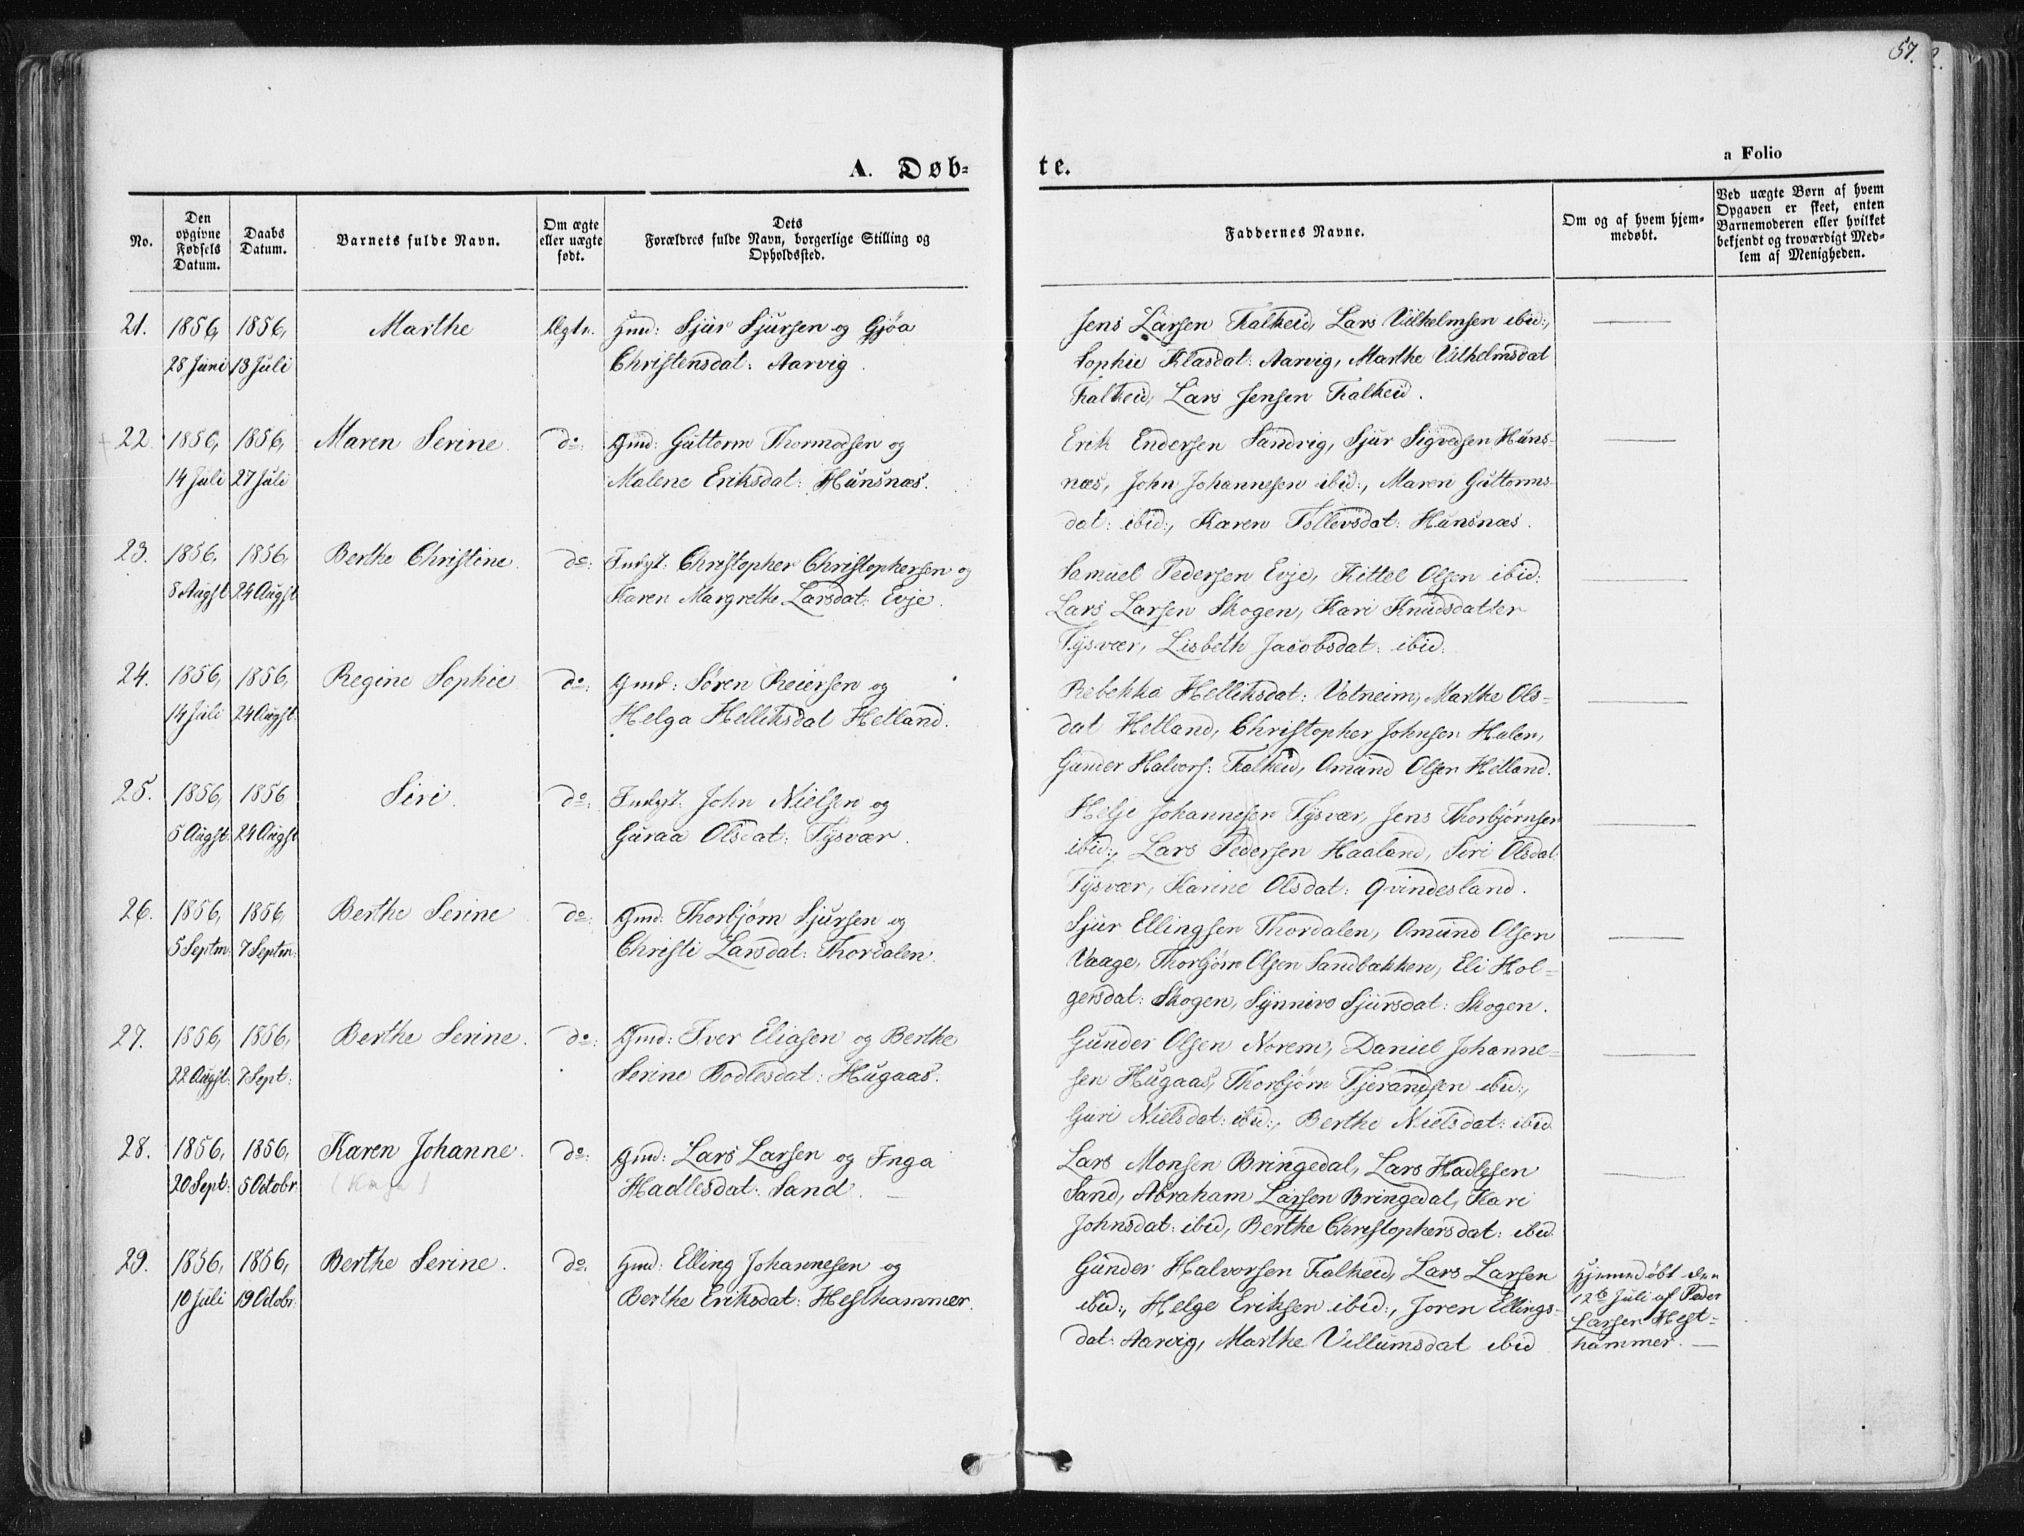 57.
A. Døb-
te.
a Folio
No.
Den opgivne Fødsels Datum.
Daabs Datum.
Barnets fulde Navn.
Om ægte eller uægte født.
Dets Forældres fulde Navn, borgerlige Stilling og Opholdssted.
Faddernes Navne.
Om og af hvem hjem-
medøbt.
Ved uægte Børn af hvem Opgaven er skeet, enten Barnemoderen eller hvilket bekjendt og troværdigt Med-
lem af Menigheden.
21. 1856, 1856, Marthe Ægte. Gmd: Sjur Sjursen og Gjøa
28 Juni 13 Juli Christensdat: Aarvig.
Jens Larsen Falkeid, Lars Vilhelmsen ibid:,
Sophie Klasdat: Aarvig, Marthe Vilhelmsdat
Falkeid, Lars Jensen Falkeid.
22. 1856, 1856, Maren Serine. do: Gmd: Guttorm Thormodsen og
14 Juli 27 Juli Malene Eriksdat: Hunsnæs.
Erik Endersen Sandvig, Sjur Sigvedsen Huns-
næs, John Johannesen ibid:, Maren Guttorms-
dat: ibid:, Karen Tollevsdat: Hunsnæs.
23. 1856, 1856, Berthe Christine. do: Indst: Christopher Christophersen og
8 Augst 24 Augst Karen Margrethe Larsdat: Evje.
Samuel Pedersen Evje, Kittel Olsen ibid:
Lars Larsen Skogen, Kari Knudsdatter
Tysvær, Lisbeth Jacobsdat: ibid:
24. 1856, 1856, Regine Sophie do: Gmd: Søren Reiersen og
14 Juli 24 Augst. Helga Helliksdat Hetland.
Rebekka Helliksdat: Vatneim, Marthe Ols-
dat Hetland, Christopher Johnsen Hulen,
Gunder Halvors: Falkeid, Omund Olsen Hetland.
25. 1856, 1856 Siri. do: Indst: John Nielsen og
5 Augst. 24 Augst Guraa Olsdat: Tysvær.
Helje Johannesen Tysvær, Jens Thorbjørnsen
ibid:, Lars Pedersen Haaland, Siri Olsdat:
Tysvær, Karine Olsdat: Qvindesland.
26. 1856, 1856 Berthe Serine do: Gmd: Thorbjørn Sjursen og
5 Septm: 7 Septm: Christi Larsdat: Thordalen.
Sjur Ellingsen Thordalen, Omund Olsen
Vaage, Thorbjørn Olsen Sandbækken, Eli Hol-
gersdat: Skogen, Synnive Sjursdat: Skogen.
27. 1856, 1856, Berthe Serine. do: Gmd: Iver Eliasen og Berthe
22 Augst: 7 Sept: Serine Bodlesdat: Hugaas.
Gunder Olsen Norem, Daniel Johanne-
sen Hugaas, Thorbjørn Tjerandsen ibid:,
Guri Nielsdat: ibid:, Berthe Nielsdat: ibid.
28. 1856, 1856, Karen Johanne. do: Gmd: Lars Larsen og Inga
20 Sept: 5 Octobr: Hadlesdat: Sand.
Lars Monsen Bringedal, Lars Hadlesen
Sand, Abraham Larsen Bringedal, Kari
Johnsdat: ibid, Berthe Christophersdat: ibid.
29. 1856, 1856, Berthe Serine. do. Gmd: Elling Johannesen og
10 Juli 19 Octobr: Berthe Eriksdat: Hesthammer.
Gunder Halvorsen Falkeid, Lars Larsen
ibid:, Helge Eriksen ibid:, Joren Ellings-
dat: Aarvig, Marthe Villumsdat ibid
Hjemmedøbt den
12te Juli af Peder
Larsen Hest-
hammer.